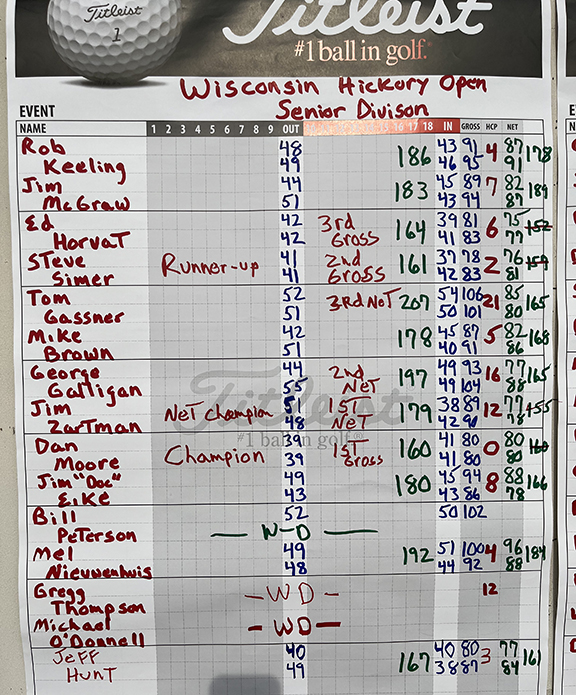 Titleist
1
Titleist
#1 ball in golf.
Wisconsin Hickory Open
EVENT Senior Divison
NAME 1 2 3 4 5 6 7 8 9 OUT 16 17 18 IN GROSS HCP NET
Rob 48 186 43 91 4 87 178
Keeling 49 46 95 91
Jim 44 183 45 89 7 82
McGraw 51 43 94 87
Ed 42 3rd 164 39 81 6 75 152
Horvat 42 Gross 41 83 77
Steve 41 2nd 161 37 78 2 76
Simer Runner-up 41 Gross 42 83 81
Tom 52 3rd Net 207 54 106 21 85 165
Gassner 51 50 101 80
Mike 42 178 45 87 5 82 168
Brown 51 40 91 86
George 44 2nd 197 49 93 16 77 165
Galligan 55 Net 49 104 88
Jim 51 1st 179 38 89 12 77 155
Zartman Net Champion 48 Net 42 90 78
Titleist
#1 ball in golf.
Dan 39 1st 160 41 80 0 80 160
Moore Champion 39 Gross 41 80 80
Jim "Doc" 49 180 45 94 8 88 166
Eike 43 43 86 78
Bill 52 50 102
Peterson W-D
Mel 49 192 51 100 4 96 184
Nieuwenhuis 48 44 92 88
Gregg - WD - 12
Thompson
Michael - WD -
O'Donnell
Jeff 40 167 40 80 3 77 161
Hunt 49 38 87 84